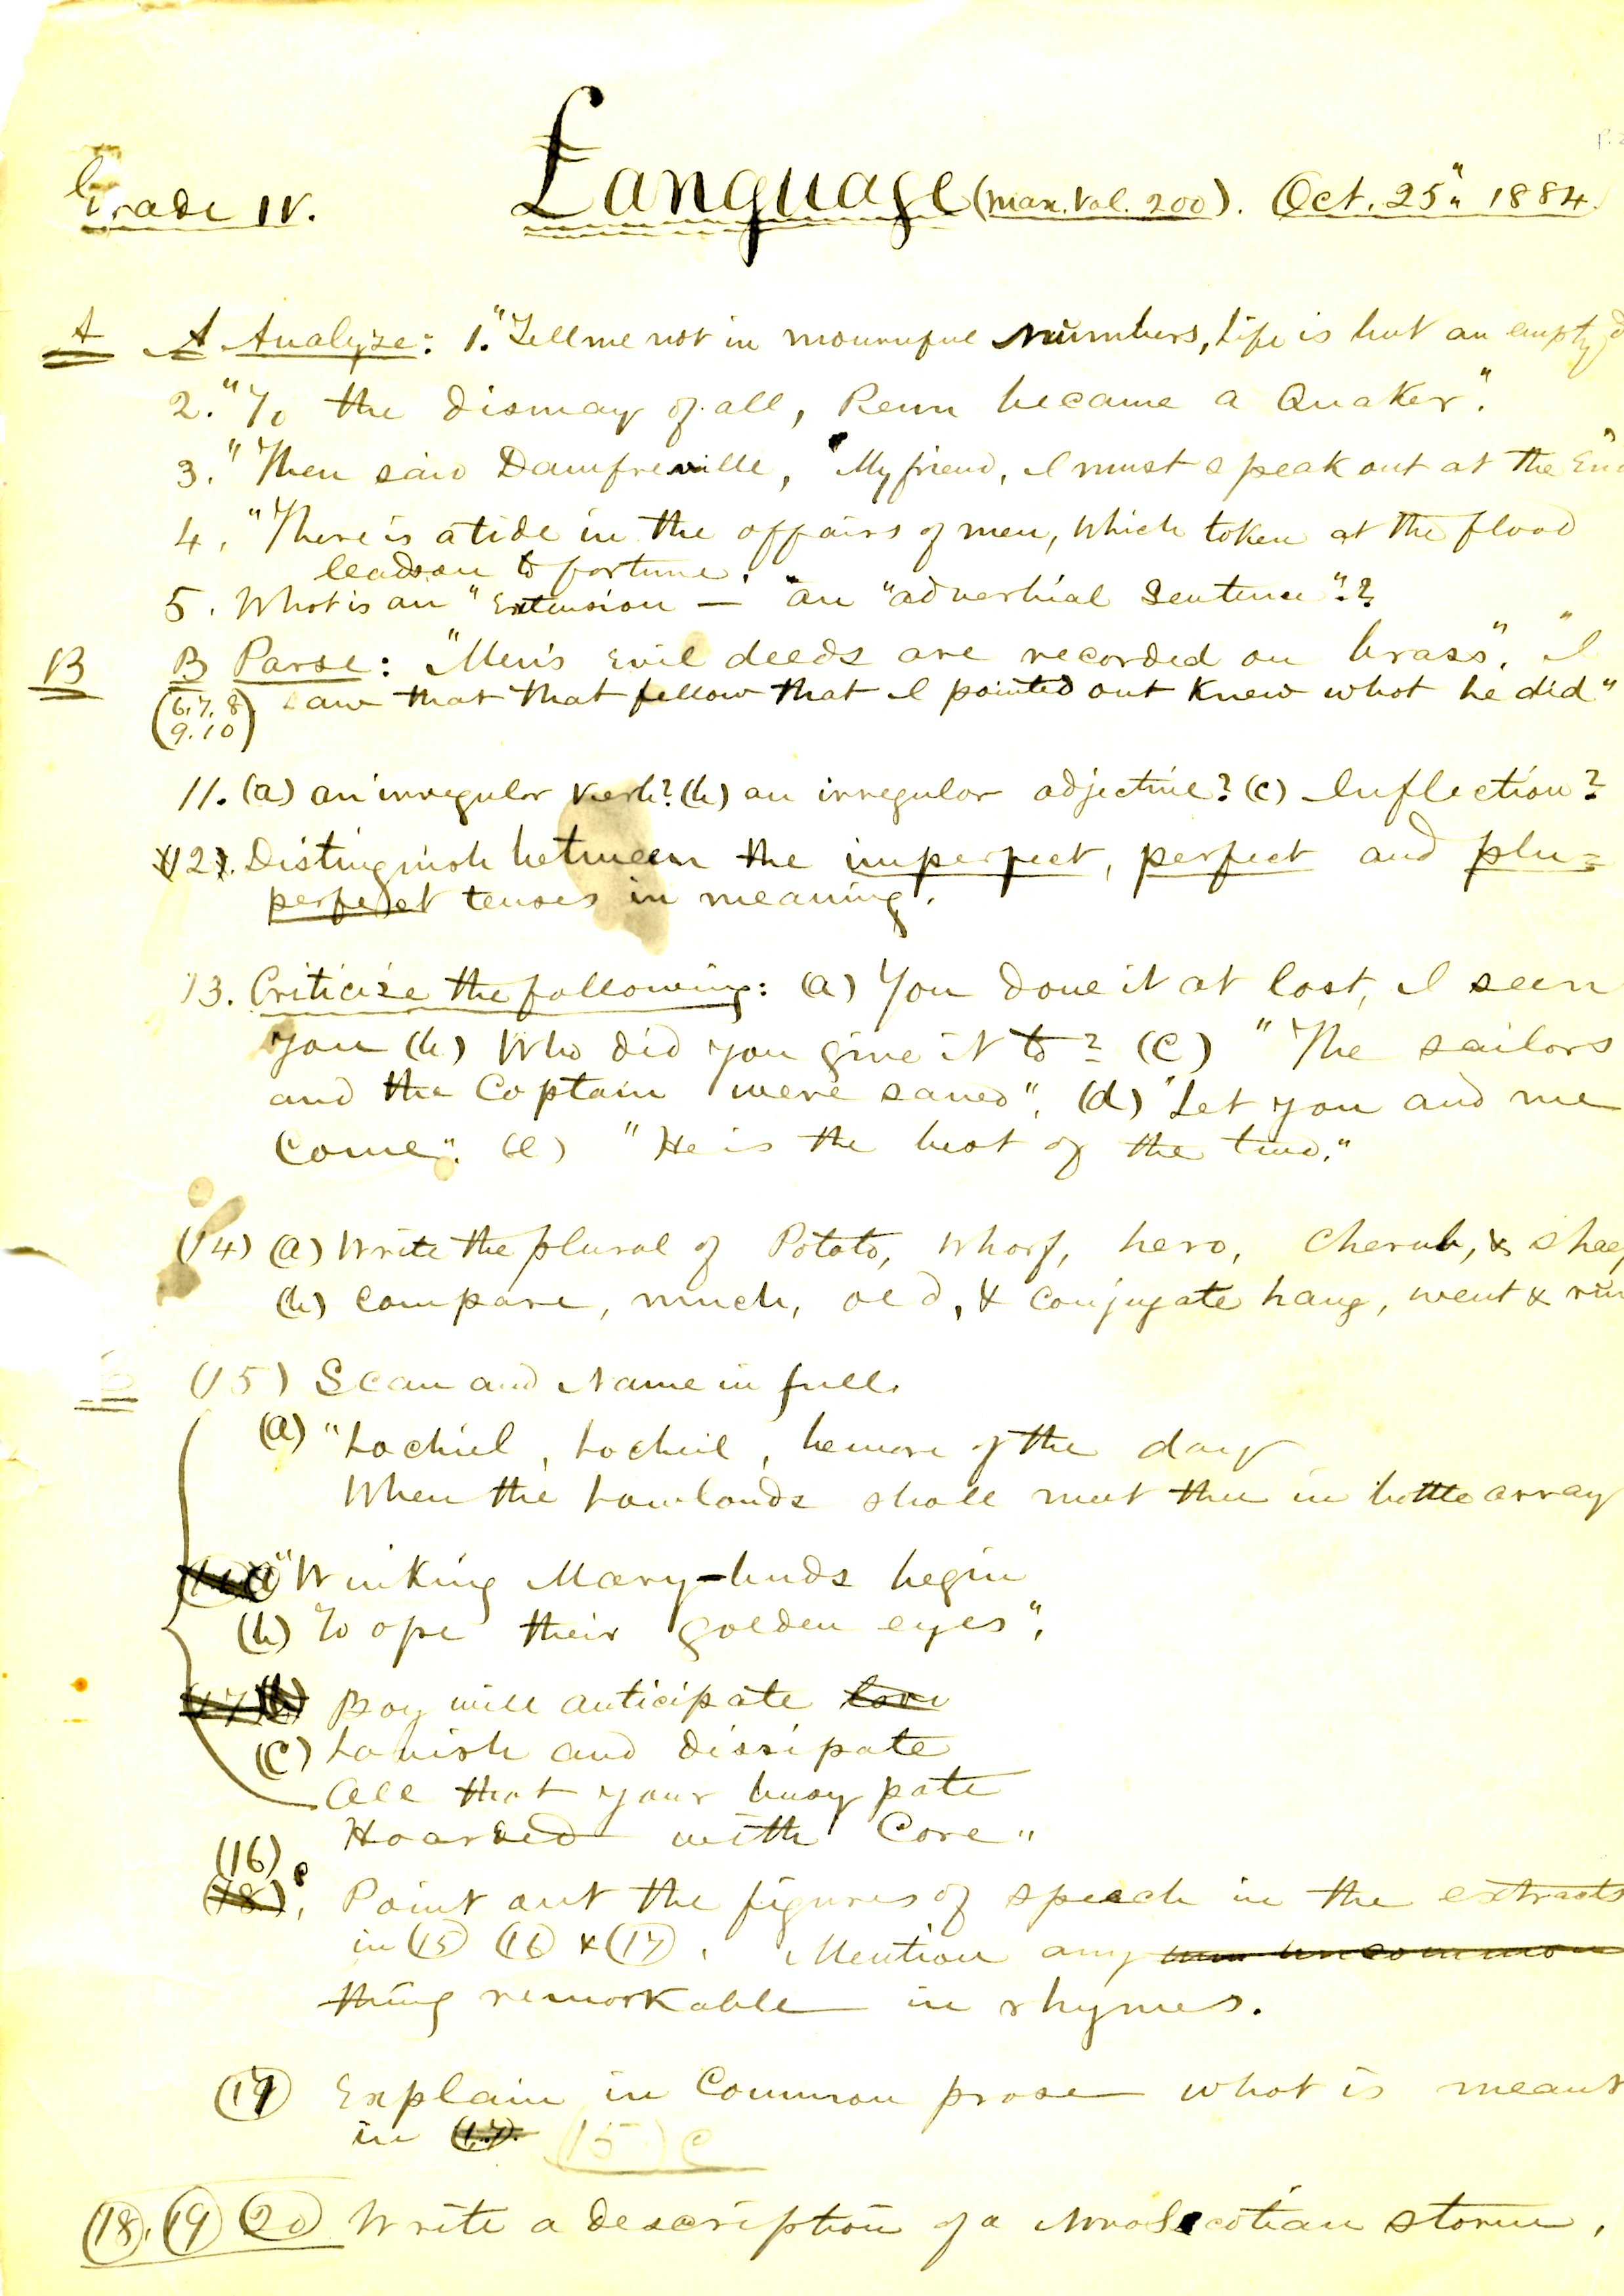 Grade IV. Language (Max. Val. 200). Oct. 25" 1884.
A A Analyze: 1. "Tell me not in mournful Numbers, Life is but an empty d
2. "To the dismay of all, Penn became a Quaker".
3. "Then said Damfreville, "My friend, I must speak out at the End"
4. "There is a tide in the affairs of men, which taken at the flood
leads on to fortune.
5. What is an "Extension — " an "adverbial Sentence"?
B B Parse: "Men's Evil deeds are recorded on brass". "I
(6.7.8 saw that that fellow that I pointed out Knew what he did"
9.10)
11. (a) an irregular verb? (b) an irregular adjective? (c) Inflection?
12. Distinguish between the imperfect, perfect and plu=
perfect tenses in meaning.
13. Criticise the following: (a) You done it at last, I seen
you (b) Who did you give it to? (c) "The sailors
and the Captain were saved". (d) "Let you and me
Come". (e) "He is the best of the two."
(14) (a) Write the plural of Potato, Wharf, hero, Cherub, & shee
(b) Compare, much, old, & Conjugate hang, went & run
(15) Scan and Name in full.
(a) "Lochiel, Lochiel, beware of the day
When the Lowlands shall meet thee in battle array
"Winking Mary-buds begin
(b) To ope their golden eyes".
Boy will anticipate
(c) Lavish and dissipate
All that your busy pate
Hoarded with Care"
(16)
(18). Point out the figures of speech in the extracts
in (15) (16) & (17). Mention any uncommon
thing remarkable in rhymes.
(17) Explain in Common prose what is meant
in (17) (15) C
(18). (19) (20) Write a description of a Nova Scotian storm.